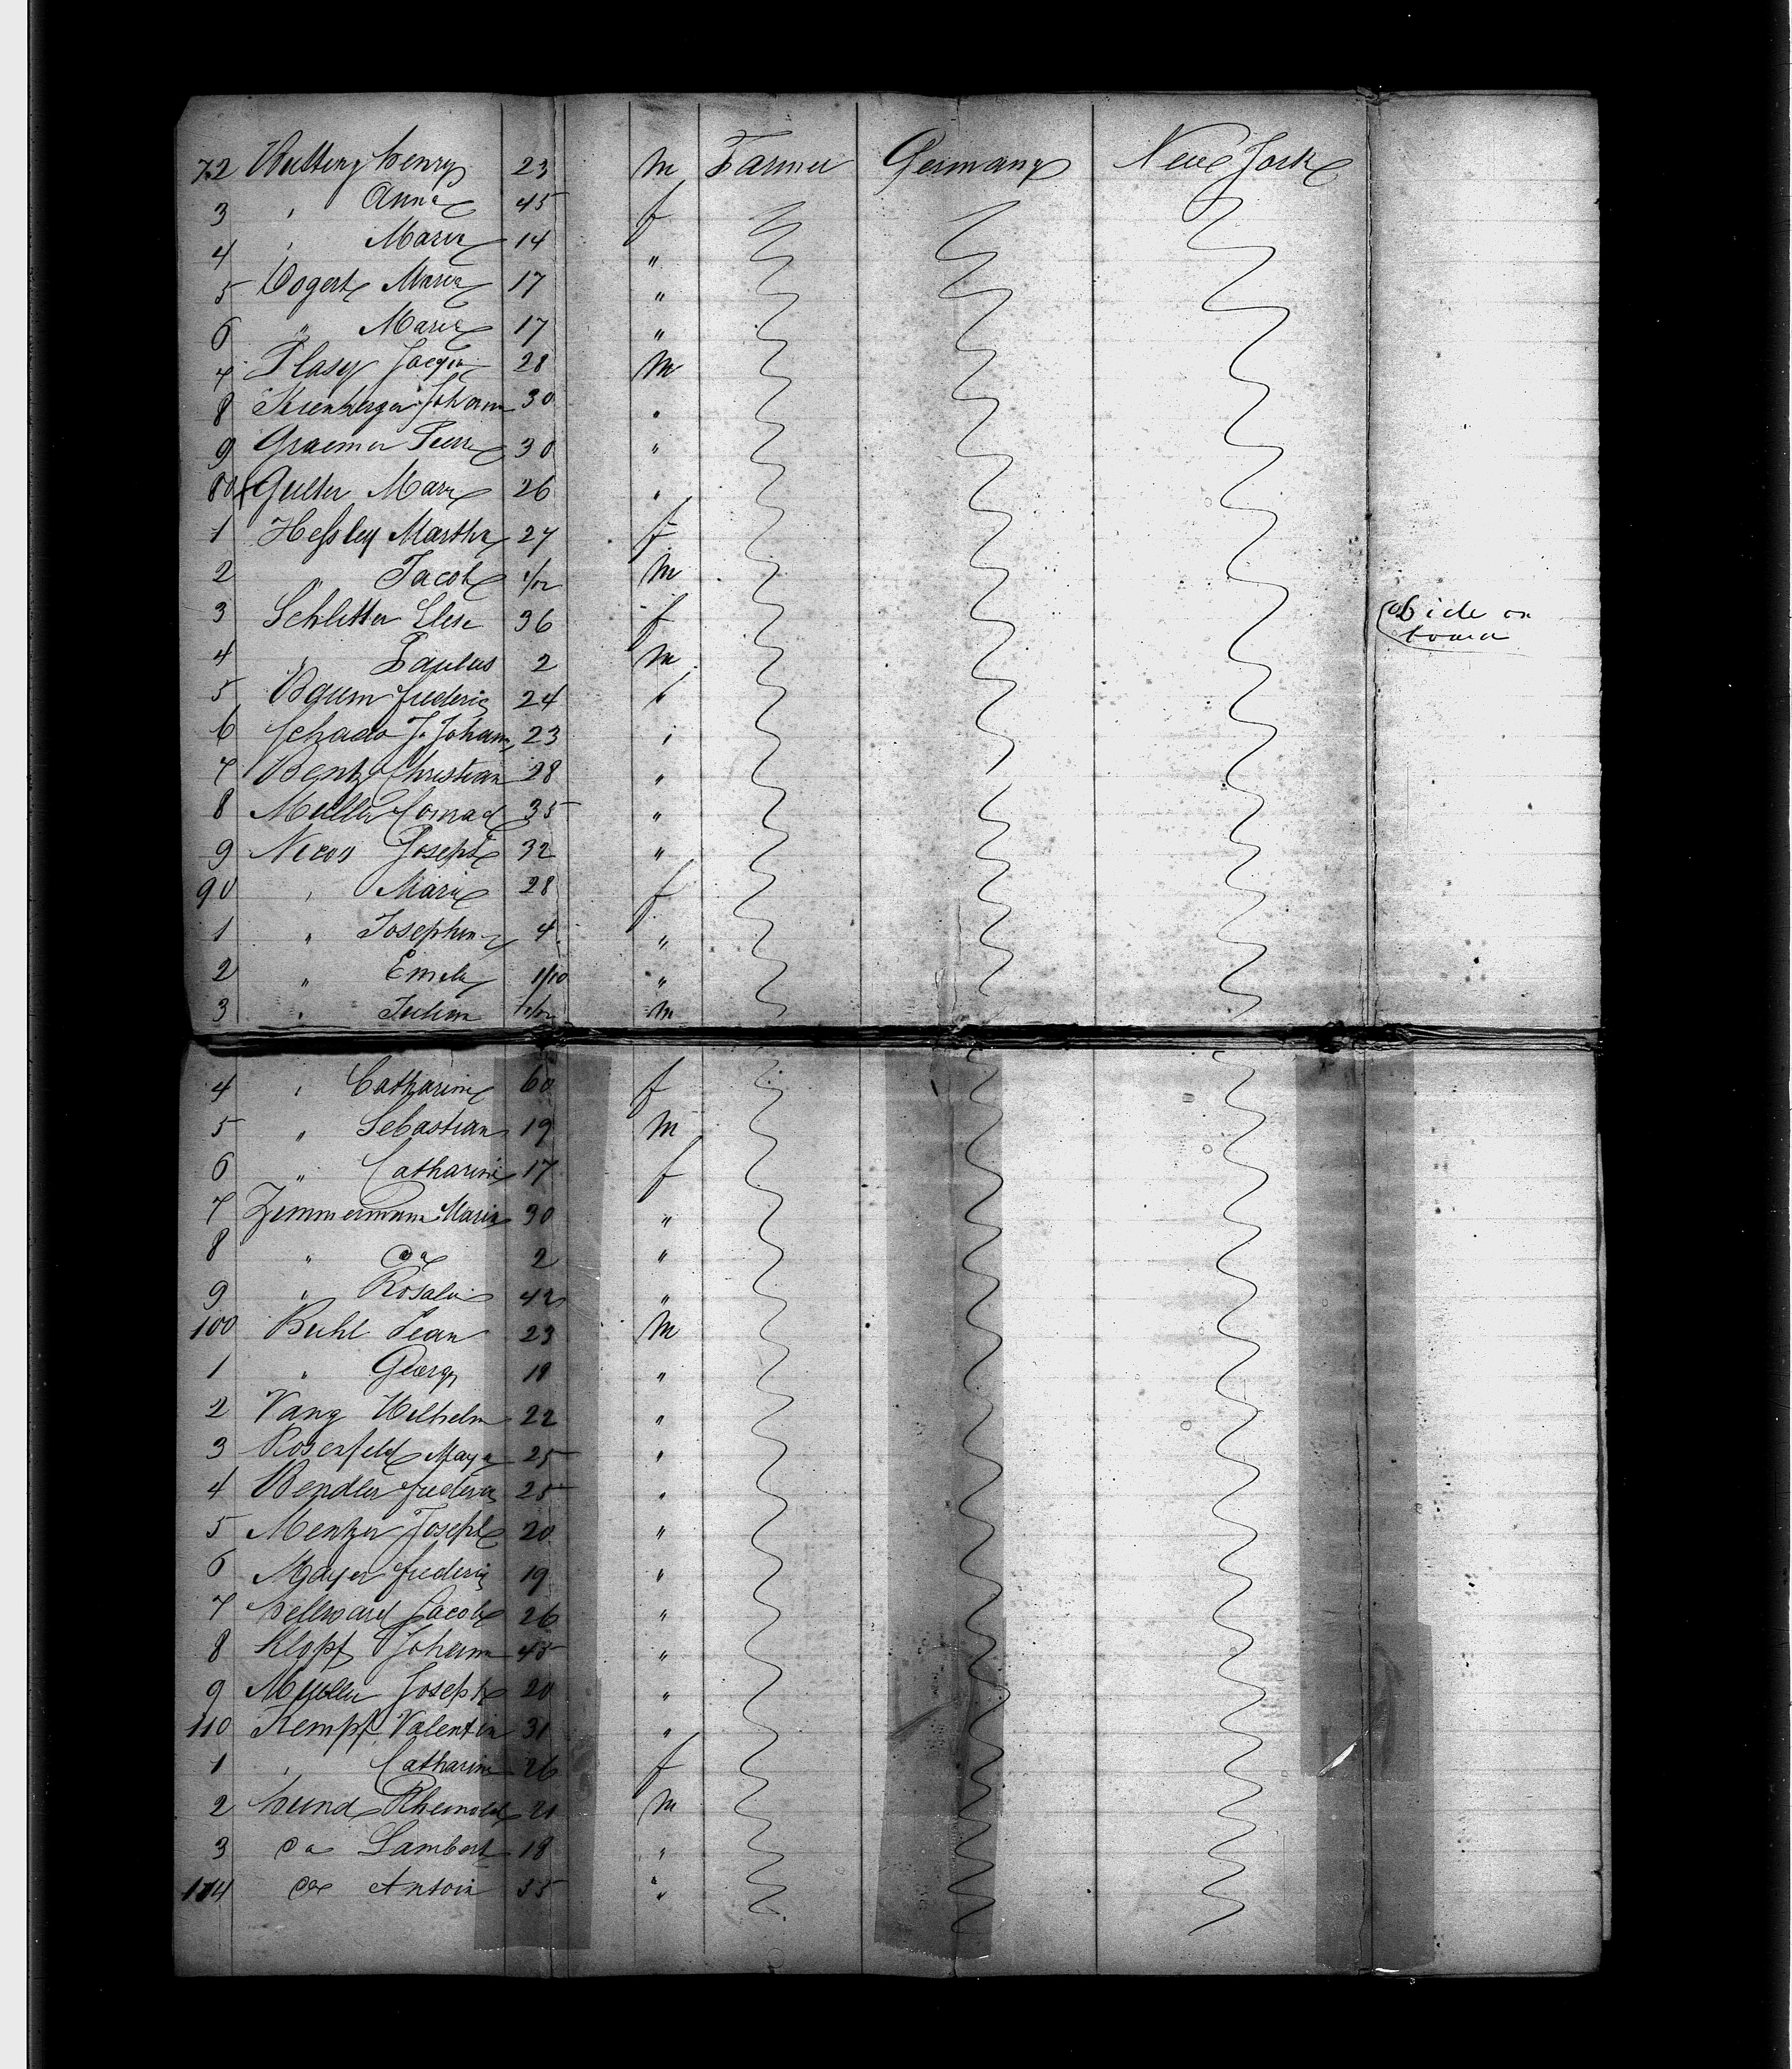 72 Henry 23 m Farmer Germany New York
3 " Anna 45 f
4 " Marie 14 "
5 Bogert Maria 17 "
6 " Marie 17 "
7 Plasy 28 m
8 Johann 30 "
9 Graemer Pierre 30 "
80 Marx 26 "
1 Hessley Martha 27 f
2 " Jacob 1/12 m
3 Schlitter Elise 36 f died on board
4 " Paulus 2 m
5 Baum frederig 24 "
6 Schado J. Johann 23 "
7 Bentz Christian 28 "
8 Muller Conrad 35 "
9 Joseph 32 "
90 " Marie 28 f
1 " Josephin 4 "
2 " 1/10 "
3 " m
4 " Catharine 60 f
5 " Sebastian 19 m
6 " Catharine 17 f
7 Zimmermann Maria 30 "
8 " do 2 "
9 " Rosalie 42 "
100 Buhl Jean 23 m
1 " Georg 19 "
2 Vang Wilhelm 22 "
3 Rosenfeld 25 "
4 Bendler frederig 25 "
5 Joseph 20 "
6 Mayer frederig 19 "
7 Hellward Jacob 26 "
8 Klopf Johann 45 "
9 Muller Joseph 20 "
110 Kempf Valentin 31 "
1 " Catharine 26 f
2 Hund Rheinold 21 m
3 do Lambert 18 "
114 do Antoin "